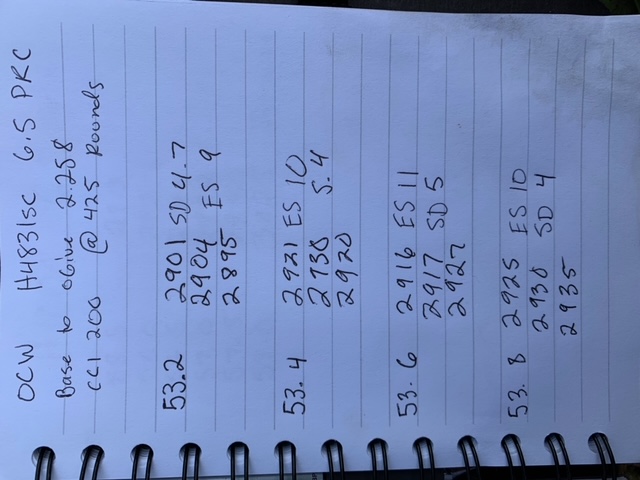 OCW H4831SC 6.5 PRC
Base to ogive 2.258
CCI 200 @ 425 Rounds
53.2 2901 SD 4.7
2904 ES 9
2895
53.4 2921 ES 10
2930 5.4
2920
53.6 2916 ES 11
2917 SD 5
2927
53.8 2925 ES 10
2930 SD 4
2935